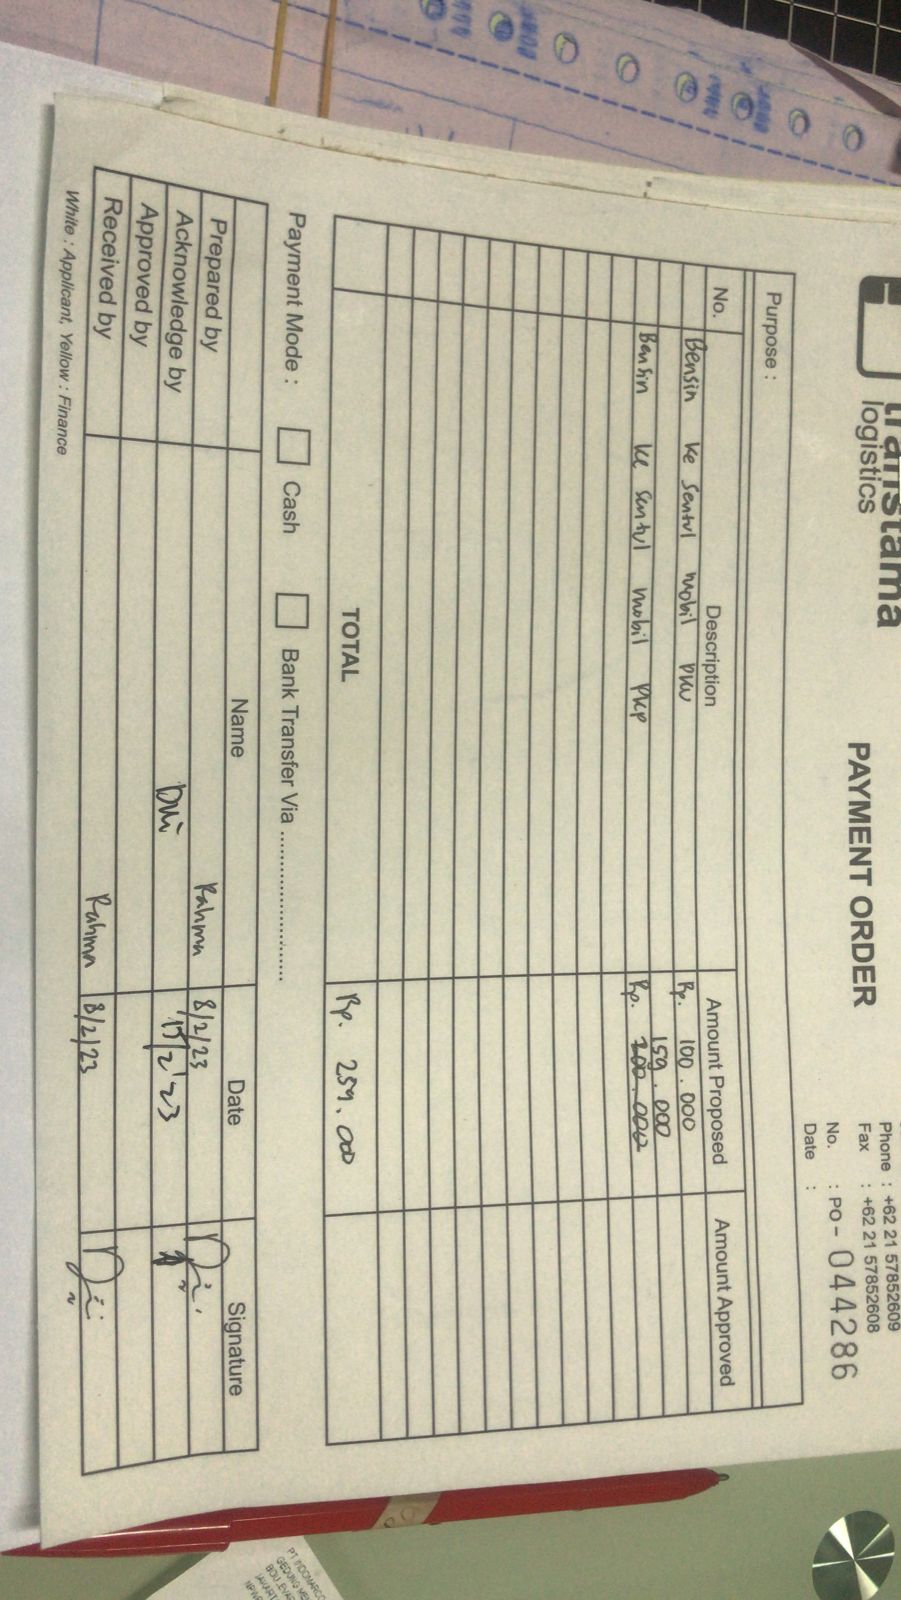 transtama
logistics
PAYMENT ORDER
Phone : +62 21 57852609
Fax : +62 21 57852608
No. : PO - 044286
Date :
Purpose :
No. Description Amount Proposed Amount Approved
Bensin ke Sentul mobil Rp. 100.000
159.000
Bensin ke sentul mobil pkp Rp. 200.000
TOTAL Rp. 259.000
Payment Mode : Cash Bank Transfer Via ......................
Name Date Signature
Prepared by Rahma 8/2/23
Acknowledge by Dwi 15/2'23
Approved by
Received by Rahma 8/2/23
White : Applicant, Yellow : Finance